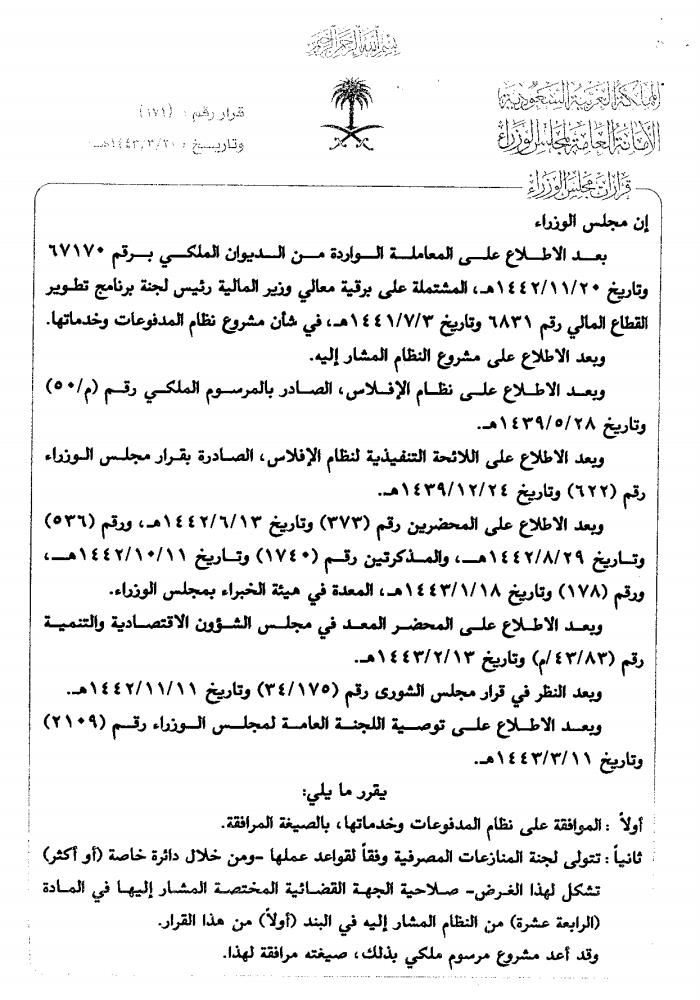 بسم الله الرحمن الرحيم
المملكة العربية السعودية
الأمانة العامة لمجلس الوزراء
قرار رقم : (١٧١)
وتاريخ : ١٤٤٣/٣/٢٠هـ
قرارات مجلس الوزراء
إن مجلس الوزراء
بعد الاطلاع على المعاملة الواردة من الديوان الملكي برقم ٦٧١٧٠
وتاريخ ١٤٤٢/١١/٢٠هـ، المشتملة على برقية معالي وزير المالية رئيس لجنة برنامج تطوير
القطاع المالي رقم ٦٨٣١ وتاريخ ١٤٤١/٧/٣هـ، في شأن مشروع نظام المدفوعات وخدماتها.
وبعد الاطلاع على مشروع النظام المشار إليه.
وبعد الاطلاع على نظام الإفلاس، الصادر بالمرسوم الملكي رقم (م/٥٠)
وتاريخ ١٤٣٩/٥/٢٨هـ.
وبعد الاطلاع على اللائحة التنفيذية لنظام الإفلاس، الصادرة بقرار مجلس الوزراء
رقم (٦٢٢) وتاريخ ١٤٣٩/١٢/٢٤هـ.
وبعد الاطلاع على المحضرين رقم (٣٧٣) وتاريخ ١٤٤٢/٦/١٣هـ، ورقم (٥٣٦)
وتاريخ ١٤٤٢/٨/٢٩هـ، والمذكرتين رقم (١٧٤٠) وتاريخ ١٤٤٢/١٠/١١هـ،
ورقم (١٧٨) وتاريخ ١٤٤٣/١/١٨هـ، المعدة في هيئة الخبراء بمجلس الوزراء.
وبعد الاطلاع على المحضر المعد في مجلس الشؤون الاقتصادية والتنمية
رقم (٤٣/٨٣/م) وتاريخ ١٤٤٣/٢/١٣هـ.
وبعد النظر في قرار مجلس الشورى رقم (٣٤/١٧٥) وتاريخ ١٤٤٢/١١/١١هـ.
وبعد الاطلاع على توصية اللجنة العامة لمجلس الوزراء رقم (٢١٠٩)
وتاريخ ١٤٤٣/٣/١١هـ.
يقرر ما يلي:
أولاً : الموافقة على نظام المدفوعات وخدماتها، بالصيغة المرافقة.
ثانياً : تتولى لجنة المنازعات المصرفية وفقاً لقواعد عملها -ومن خلال دائرة خاصة (أو أكثر)
تشكل لهذا الغرض- صلاحية الجهة القضائية المختصة المشار إليها في المادة
(الرابعة عشرة) من النظام المشار إليه في البند (أولاً) من هذا القرار.
وقد أعد مشروع مرسوم ملكي بذلك، صيغته مرافقة لهذا.